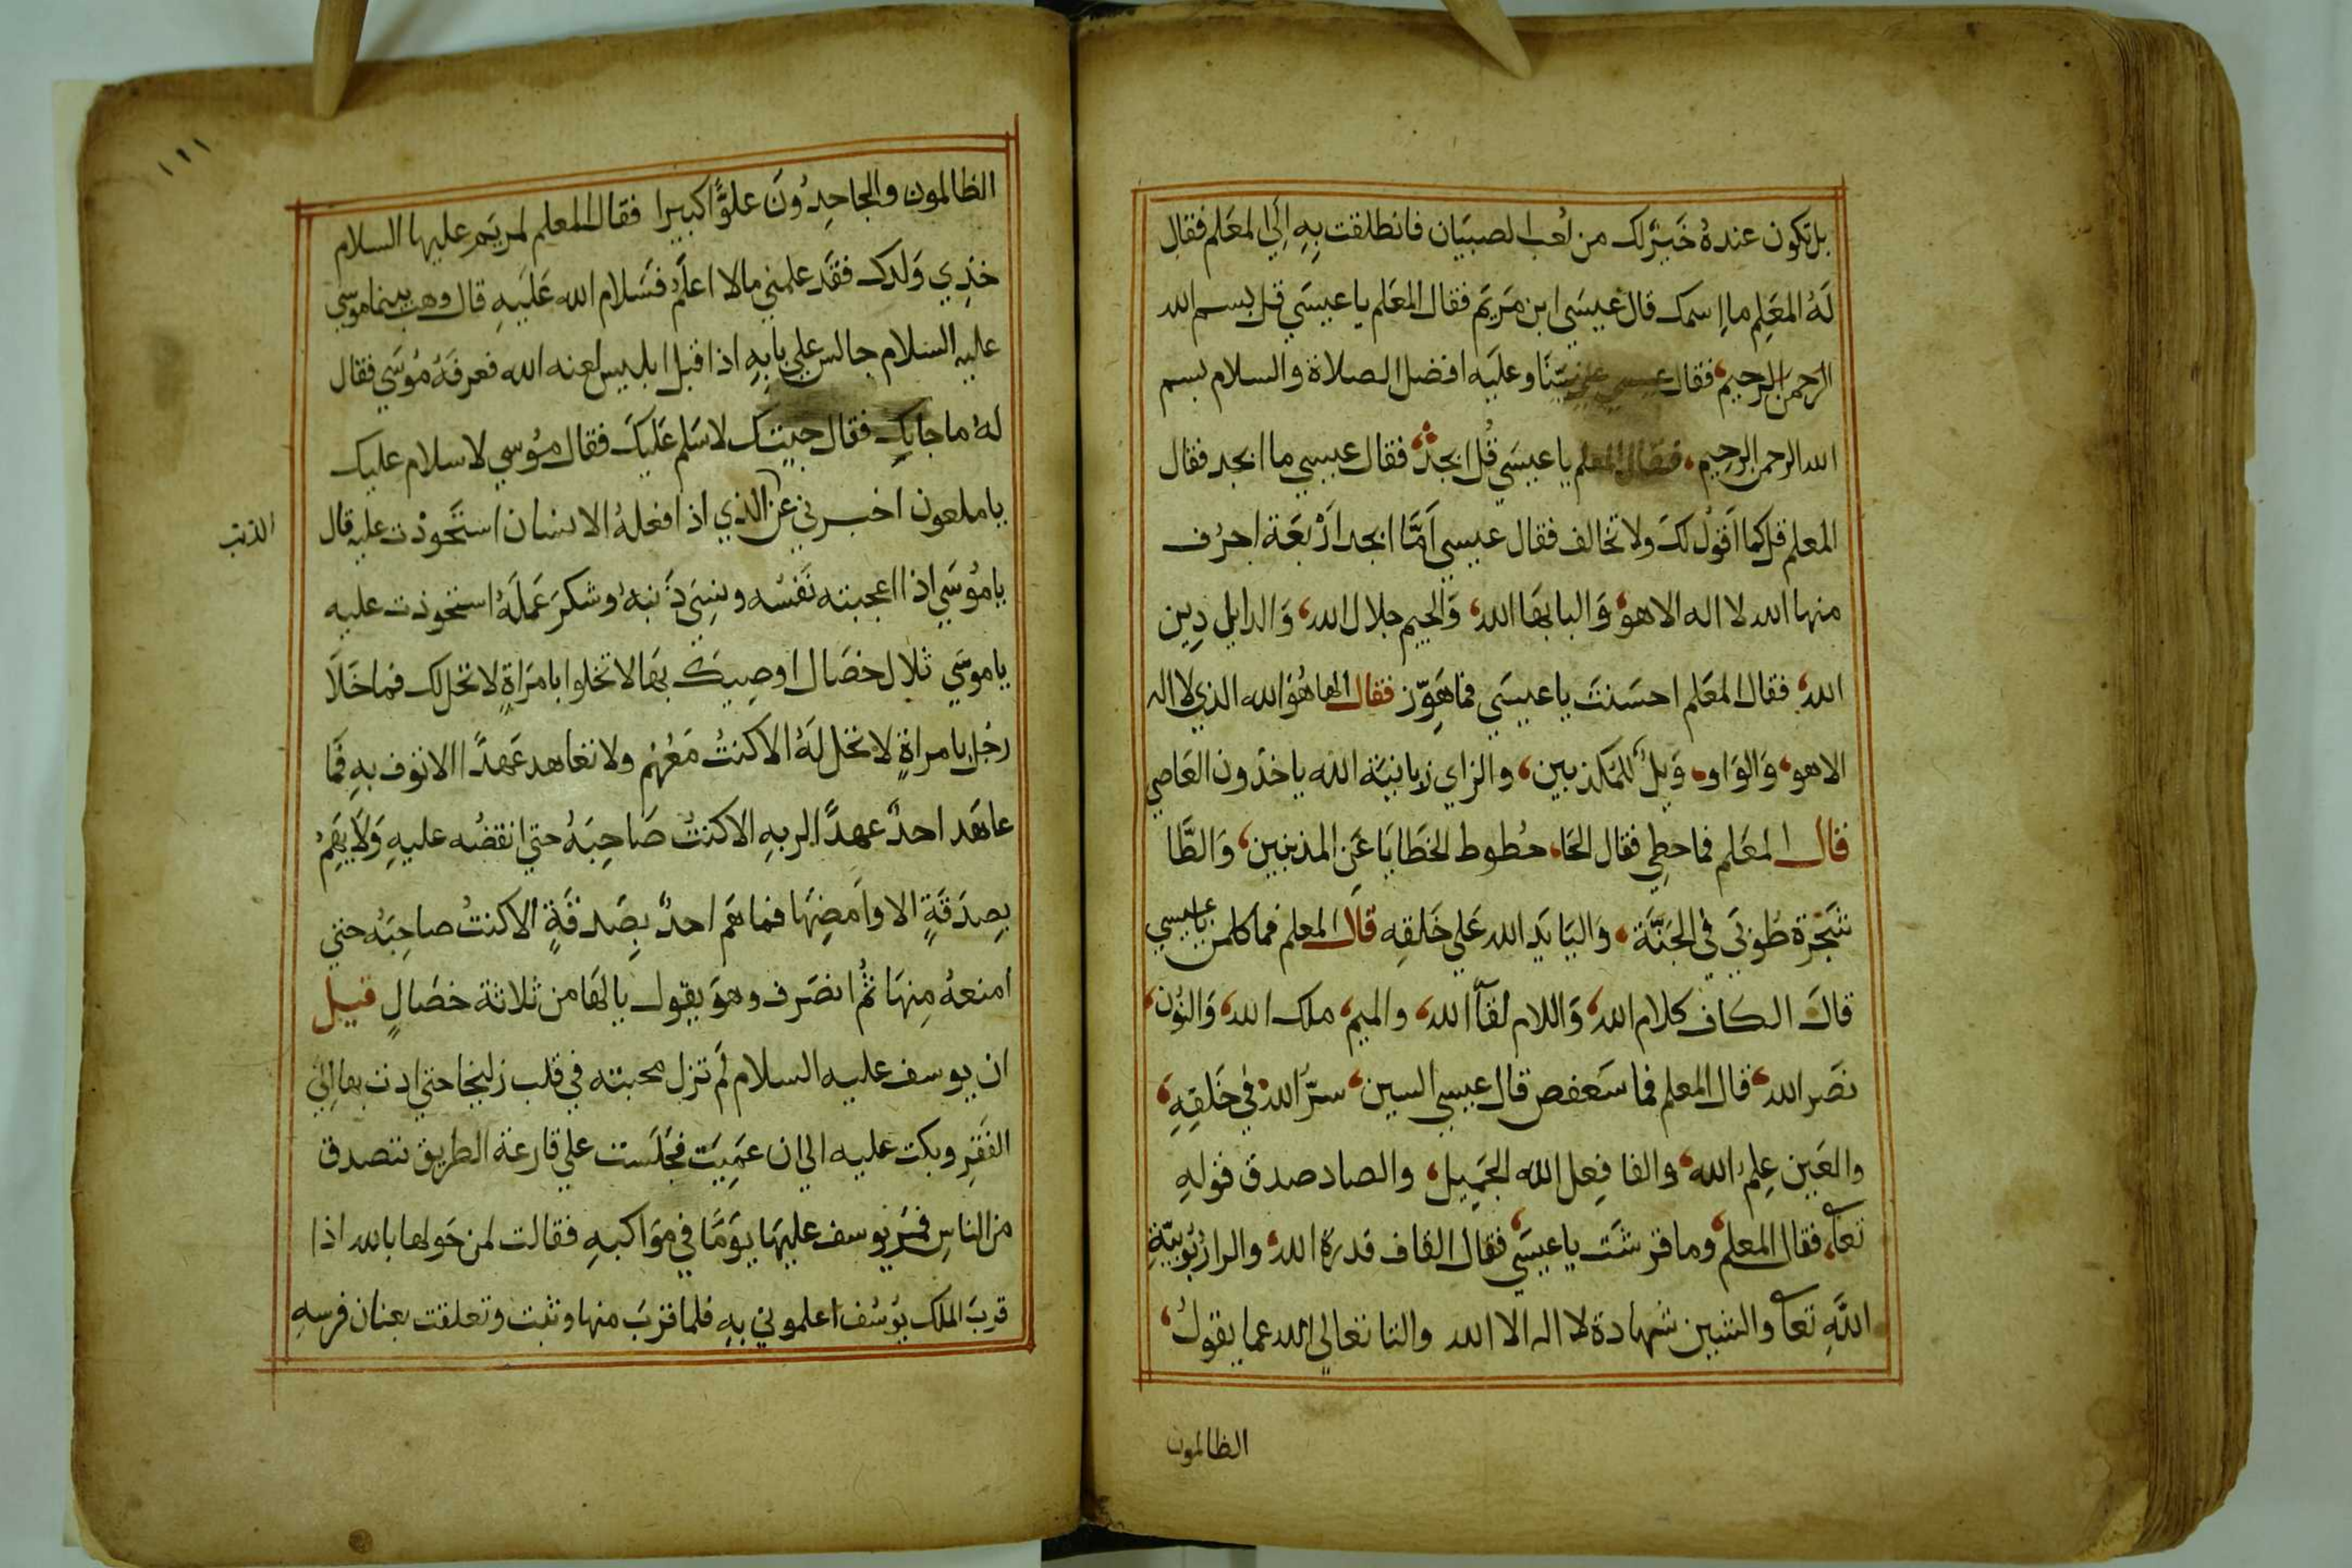 بل تكون عنده خير لك من لعب الصبيان فانطلقت به الي المعلم فقال
له المعلم ما اسمك قال عيسي ابن مريم فقال المعلم يا عيسي قل بسم الله
الرحمن الرحيم فقال عيسي علي نبينا وعليه افضل الصلاة والسلام بسم
الله الرحمن الرحيم فقال المعلم يا عيسي قل ابجد فقال عيسي ما ابجد فقال
المعلم قل كما اقول لك ولا تخالف فقال عيسي اما ابجد اربعة احرف
منها الله لا اله الا هو والبا بها الله والجيم جلال الله والدايل دين
الله فقال المعلم احسنت يا عيسي فما هوز فقال الها هو الله الذي لا اله
الا هو والواو ويل للمكذبين والزاي زبانية الله ياخذون العاصي
قال المعلم فما حطي فقال الحا حطوط الخطايا عن المذنبين والطا
شجرة طوبي في الجنة واليا يد الله علي خلقه قال المعلم فما كلمن يا عيسي
قال الكاف كلام الله واللام لقآ الله والميم ملك الله والنون
نصر الله قال المعلم فما سعفص قال عيسي السين سر الله في خلقه
والعين علم الله والفا فعل الله الجميل والصاد صدق قوله
تعا فقال المعلم وما قرشت يا عيسي فقال القاف قدرة الله والرا ربوبية
الله تعا والشين شهادة لا اله الا الله والتا تعالي الله عما يقول
الظالمون
١٢١
الظالمون والجاحدون علوا كبيرا فقال المعلم لمريم عليها السلام
خذي ولدك فقد علمني مالا اعلم فسلام الله عليه قال وهب بينما موسي
عليه السلام جالس علي بابه اذ اقبل ابليس لعنه الله فعرفه موسي فقال
له ما جابك فقال جيتك لاسلم عليك فقال موسي لا سلام عليك
يا ملعون اخبرني عن الذي اذا فعله الانسان استحوذت عليه قال
الذنب
يا موسي اذا اعجبته نفسه ونسي ذنبه وشكر عمله استحوذت عليه
يا موسي ثلاث خصال اوصيك بها لا تخلوا بامراة لا تحل لك فما خلا
رجل بامراة لا تحل له الا كنت معهم ولا تعاهد عهدا الا توف به فما
عاهد احد عهدا لربه الا كنت صاحبه حتي انقضه عليه ولا يهم
بصدقة الا وامضها فما هم احد بصدقة الا كنت صاحبه حتي
امنعه منها ثم انصرف وهو يقول يا لها من ثلاثة خصال قيل
ان يوسف عليه السلام لم تزل محبته في قلب زليخا حتي ادت بها الي
الفقر وبكت عليه الي ان عميت فجلست علي قارعة الطريق تتصدق
من الناس فمر يوسف عليها يوما في مواكبه فقالت لمن حولها بالله اذا
قرب الملك يوسف اعلموني به فلما قرب منها وثبت وتعلقت بعنان فرسه